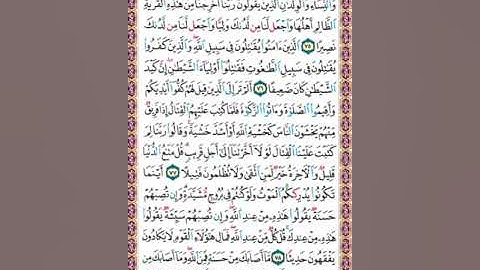 وَالنِّسَاءِ وَالْوِلْدَانِ الَّذِينَ يَقُولُونَ رَبَّنَا أَخْرِجْنَا مِنْ هَٰذِهِ الْقَرْيَةِ
الظَّالِمِ أَهْلُهَا وَاجْعَل لَّنَا مِن لَّدُنكَ وَلِيًّا وَاجْعَل لَّنَا مِن لَّدُنكَ
نَصِيرًا ۝٧٥ الَّذِينَ ءَامَنُوا يُقَاتِلُونَ فِي سَبِيلِ اللَّهِ وَالَّذِينَ كَفَرُوا
يُقَاتِلُونَ فِي سَبِيلِ الطَّاغُوتِ فَقَاتِلُوا أَوْلِيَاءَ الشَّيْطَانِ إِنَّ كَيْدَ
الشَّيْطَانِ كَانَ ضَعِيفًا ۝٧٦ أَلَمْ تَرَ إِلَى الَّذِينَ قِيلَ لَهُمْ كُفُّوا أَيْدِيَكُمْ
وَأَقِيمُوا الصَّلَوٰةَ وَءَاتُوا الزَّكَوٰةَ فَلَمَّا كُتِبَ عَلَيْهِمُ الْقِتَالُ إِذَا فَرِيقٌ
مِّنْهُمْ يَخْشَوْنَ النَّاسَ كَخَشْيَةِ اللَّهِ أَوْ أَشَدَّ خَشْيَةً وَقَالُوا رَبَّنَا لِمَ
كَتَبْتَ عَلَيْنَا الْقِتَالَ لَوْلَا أَخَّرْتَنَا إِلَىٰ أَجَلٍ قَرِيبٍ قُلْ مَتَاعُ الدُّنْيَا
قَلِيلٌ وَالْآخِرَةُ خَيْرٌ لِّمَنِ اتَّقَىٰ وَلَا تُظْلَمُونَ فَتِيلًا ۝٧٧ أَيْنَمَا
تَكُونُوا يُدْرِككُّمُ الْمَوْتُ وَلَوْ كُنتُمْ فِي بُرُوجٍ مُّشَيَّدَةٍ وَإِن تُصِبْهُمْ
حَسَنَةٌ يَقُولُوا هَٰذِهِ مِنْ عِندِ اللَّهِ وَإِن تُصِبْهُمْ سَيِّئَةٌ يَقُولُوا
هَٰذِهِ مِنْ عِندِكَ قُلْ كُلٌّ مِّنْ عِندِ اللَّهِ فَمَالِ هَٰؤُلَاءِ الْقَوْمِ لَا يَكَادُونَ
يَفْقَهُونَ حَدِيثًا ۝٧٨ مَّا أَصَابَكَ مِنْ حَسَنَةٍ فَمِنَ اللَّهِ وَمَا أَصَابَكَ مِن